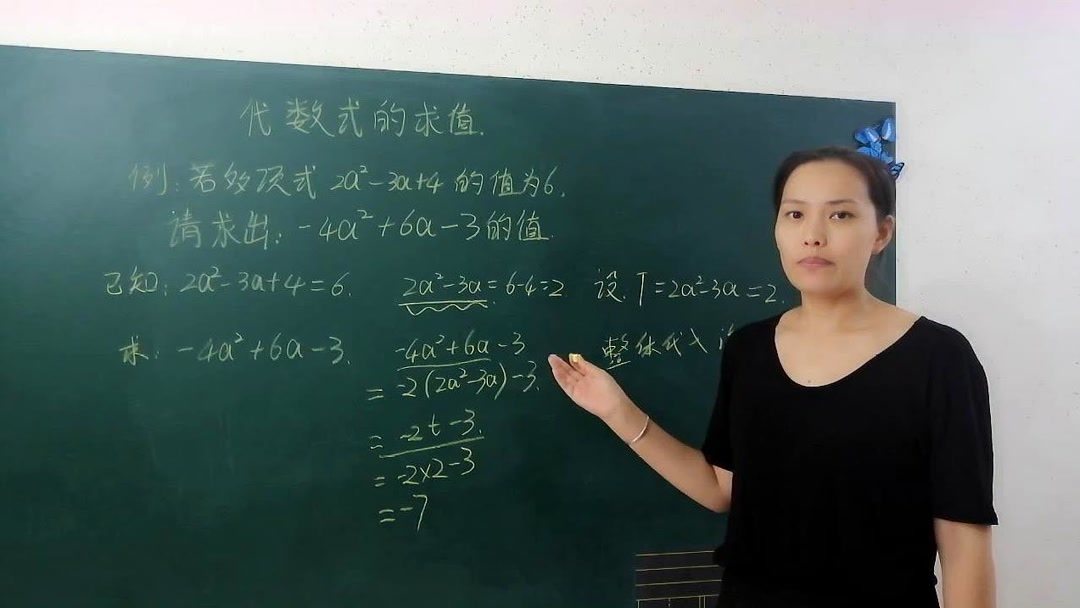 代数式的求值.
例:若多项式 2a²-3a+4 的值为6.
请求出:-4a²+6a-3的值.
已知:2a²-3a+4=6. 2a²-3a=6-4=2 设.T=2a²-3a=2.
求:-4a²+6a-3. -4a²+6a-3 整体代入
=-2(2a²-3a)-3.
=-2t-3.
=-2×2-3
=-7